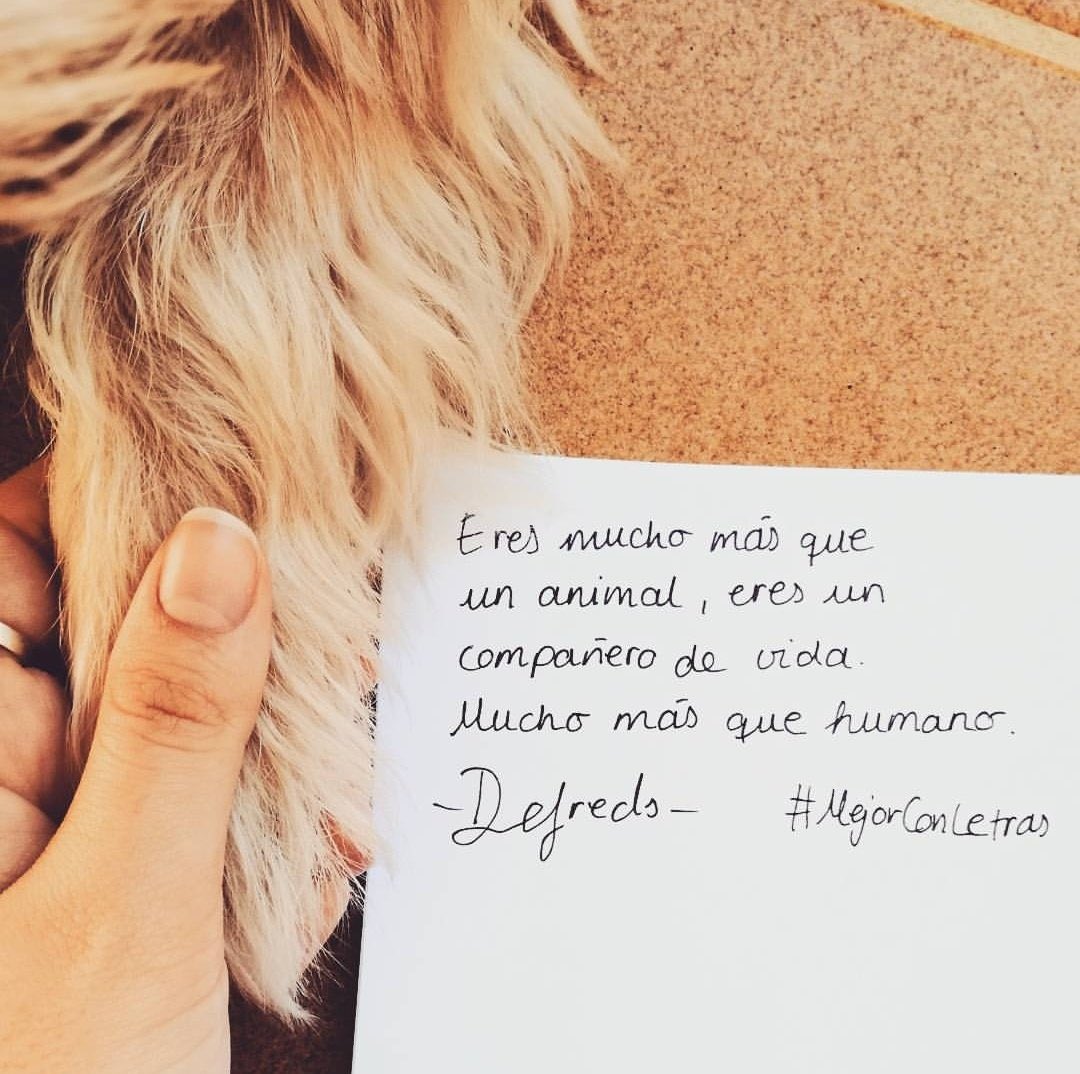 Eres mucho más que
un animal, eres un
compañero de vida.
Mucho más que humano.
-Defreds- #MejorConLetras